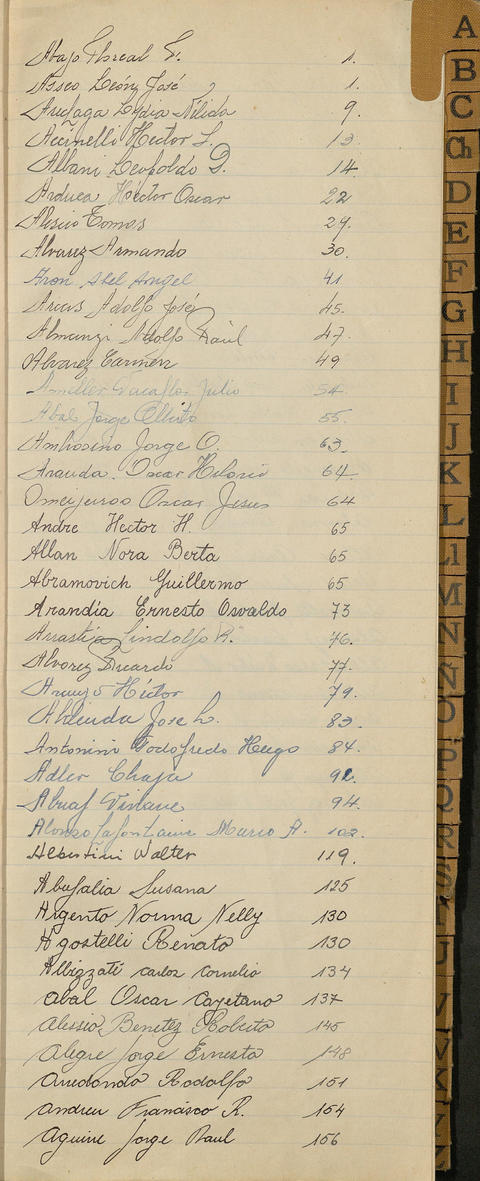 Abajo Floreal E. 1.
Asseo León José 1.
Lydia Nélida 9.
Accinelli Hector L. 13
Albani Leopoldo D. 14
Arduca Héctor Oscar 22
Alisio Tomas 29.
Alvarez Armando 30.
Aron Abel Angel 41
Arcus Adolfo José 45.
Almanzi Adolfo Raúl 47.
Alvarez Carmen 49
Julio 54.
Abal Jorge Alberto 55.
Ambrosino Jorge O. 63.
Aranda Oscar Hilario 64.
Oscar Jesus 64
Andre Hector H. 65
Allan Nora Berta 65
Abramovich Guillermo 65
Arandia Ernesto Osvaldo 73
Lindolfo R. 76.
Alvarez Ricardo 77.
Araujo Héctor 79.
Jose L. 83.
Antonini Godofredo Hugo 84.
Adler Chaja 92.
94.
Alonso Lafontaine Mario A. 102.
Albertini Walter 119.
Abufalia Susana 125
Argento Norma Nelly 130
Agostelli Renato 130
Albizzati Carlos Cornelio 134
Abal Oscar Cayetano 137
Alessio Benetez Roberto 145
Alegre Jorge Ernesto 148
Arredondo Rodolfo 151
Andreu Francisco R. 154
Aguirre Jorge Raul 156
A
B
C
Ch
D
E
F
G
H
I
J
K
L
Ll
M
N
Ñ
O
P
Q
R
S
T
U
V
W
X
Y
Z